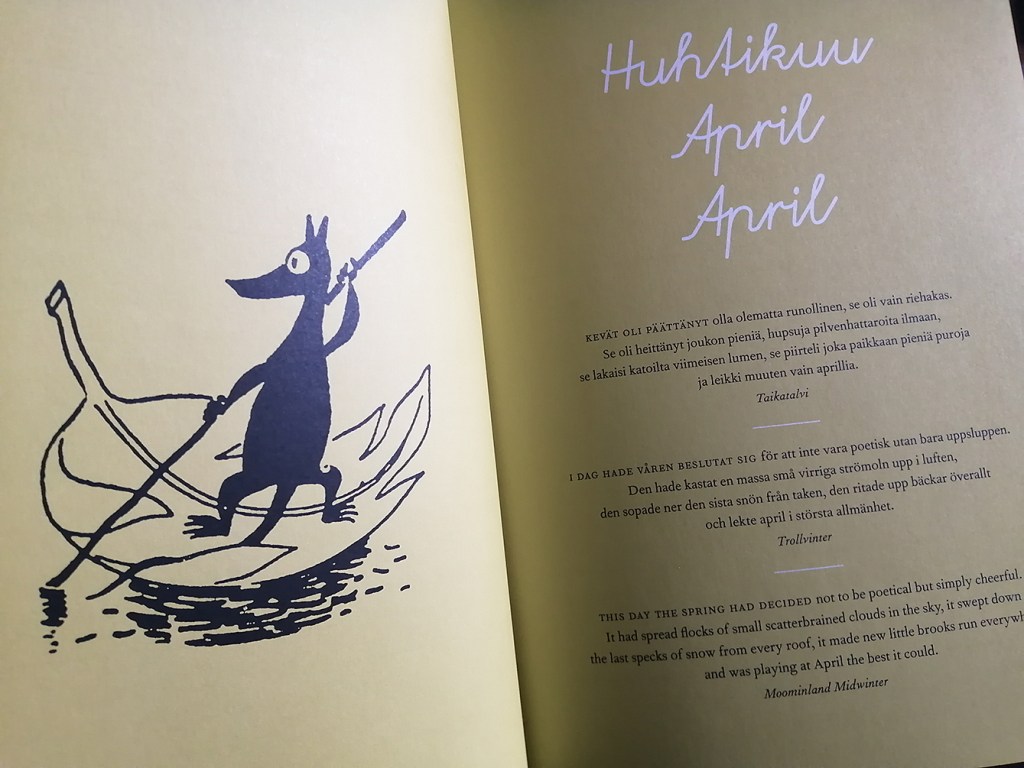 Huhtikuu
April
April
KEVÄT OLI PÄÄTTÄNYT olla olematta runollinen, se oli vain riehakas.
Se oli heittänyt joukon pieniä, hupsuja pilvenhattaroita ilmaan,
se lakaisi katoilta viimeisen lumen, se piirteli joka paikkaan pieniä puroja
ja leikki muuten vain aprillia.
Taikatalvi
I DAG HADE VÅREN BESLUTAT SIG för att inte vara poetisk utan bara uppsluppen.
Den hade kastat en massa små virriga strömoln upp i luften,
den sopade ner den sista snön från taken, den ritade upp bäckar överallt
och lekte april i största allmänhet.
Trollvinter
THIS DAY THE SPRING HAD DECIDED not to be poetical but simply cheerful.
It had spread flocks of small scatterbrained clouds in the sky, it swept down
the last specks of snow from every roof, it made new little brooks run everywh
and was playing at April the best it could.
Moominland Midwinter